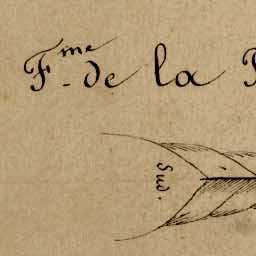 F.me de la
Sud.